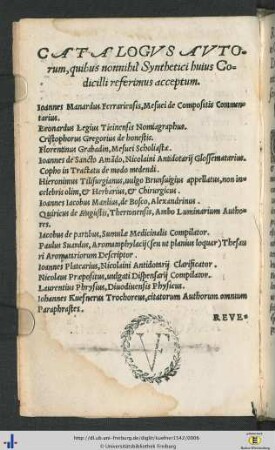 CATALOGVS AVTO-
rum, quibus nonnihil Synthetici huius Co-
dicilli referimus acceptum.
Ioannes Manardus Ferrariensis, Mesuei de Compositis Commen-
tarius.
Leonardus Legius Ticinensis Nomiagraphus.
Cristophorus Gregorius de honestis.
Florentinus Grabadin, Mesuei Scholiastes.
Ioannes de Sancto Amãdo, Nicolaini Antidotarij Glossematarius.
Cophο in Tractatu de modo medendi.
Hieronimus Tilsurgianus, uulgo Brunsuigius appellatus, non in-
celebris olim, & Herbarius, & Chirurgicus.
Ioannes Iacobus Manlius, de Bosco, Alexandrinus.
Quiricus de Augustis, Therτonensis, Ambo Luminarium Autho-
res.
Iacobus de partibus, Summulæ Medicinalis Compilator.
Paulus Suardus, Aromaphylacij (seu ut planius loquar) Thesau
ri Aromatariorum Descriptor.
Ioannes Platearius, Nicolaini Antidotarij Clarificator.
Nicolaus Præpositus, uulgati Dispensarij Compilator.
Laurentius Phrysius, Diuodiuensis Physicus.
Iohannes Kuefnerus Trochoreus, citatorum Authorum omnium
Paraphrastes.
REVE-
V
http://dl.ub.uni-freiburg.de/diglit/fuether1542/0006
© Universitätsbibliothek Freiburg